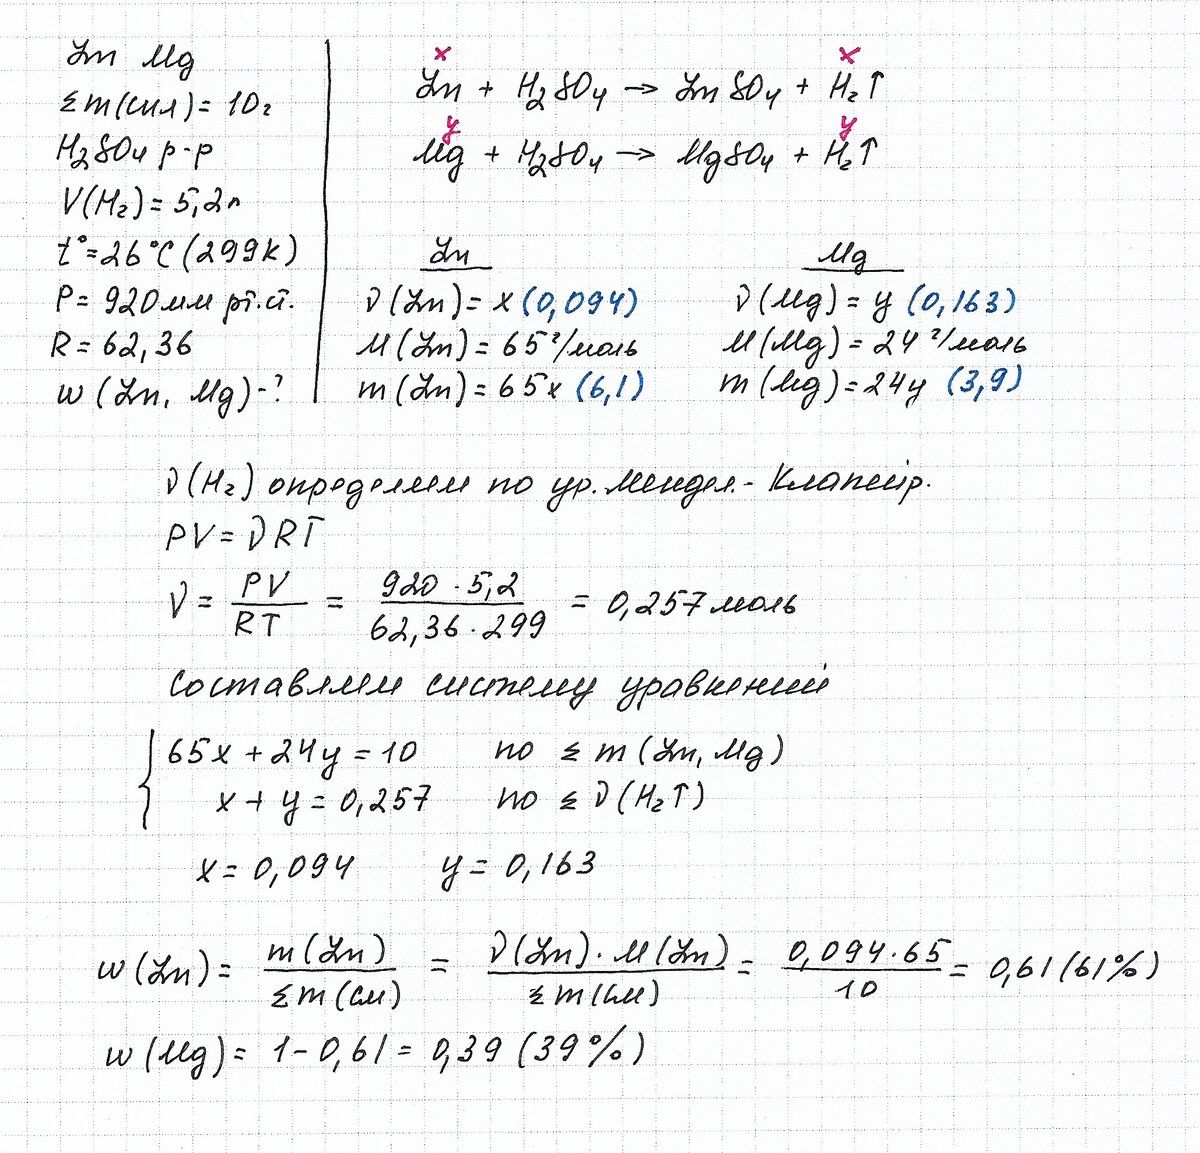 Zn Mg
Σm(сил) = 10г
H₂SO₄ р-р
V(H₂) = 5,2л
t° = 26°C (299K)
P = 920 мм рт.ст.
R = 62,36
w (Zn, Mg) - ?
x x
Zn + H₂SO₄ → ZnSO₄ + H₂↑
y y
Mg + H₂SO₄ → MgSO₄ + H₂↑
Zn
ν(Zn) = x (0,094)
M(Zn) = 65 г/моль
m(Zn) = 65x (6,1)
Mg
ν(Mg) = y (0,163)
M(Mg) = 24 г/моль
m(Mg) = 24y (3,9)
ν(H₂) определяем по ур. Мендел.- Клапейр.
PV = νRT
ν = PV/RT = 920 · 5,2/62,36 · 299 = 0,257 моль
Составляем систему уравнений
{ 65x + 24y = 10 по Σ m (Zn, Mg)
x + y = 0,257 по Σ ν(H₂↑)
x = 0,094 y = 0,163
w(Zn) = m(Zn)/Σm(см) = ν(Zn) · M(Zn)/Σm(см) = 0,094 · 65/10 = 0,61 (61%)
w(Mg) = 1 - 0,61 = 0,39 (39%)